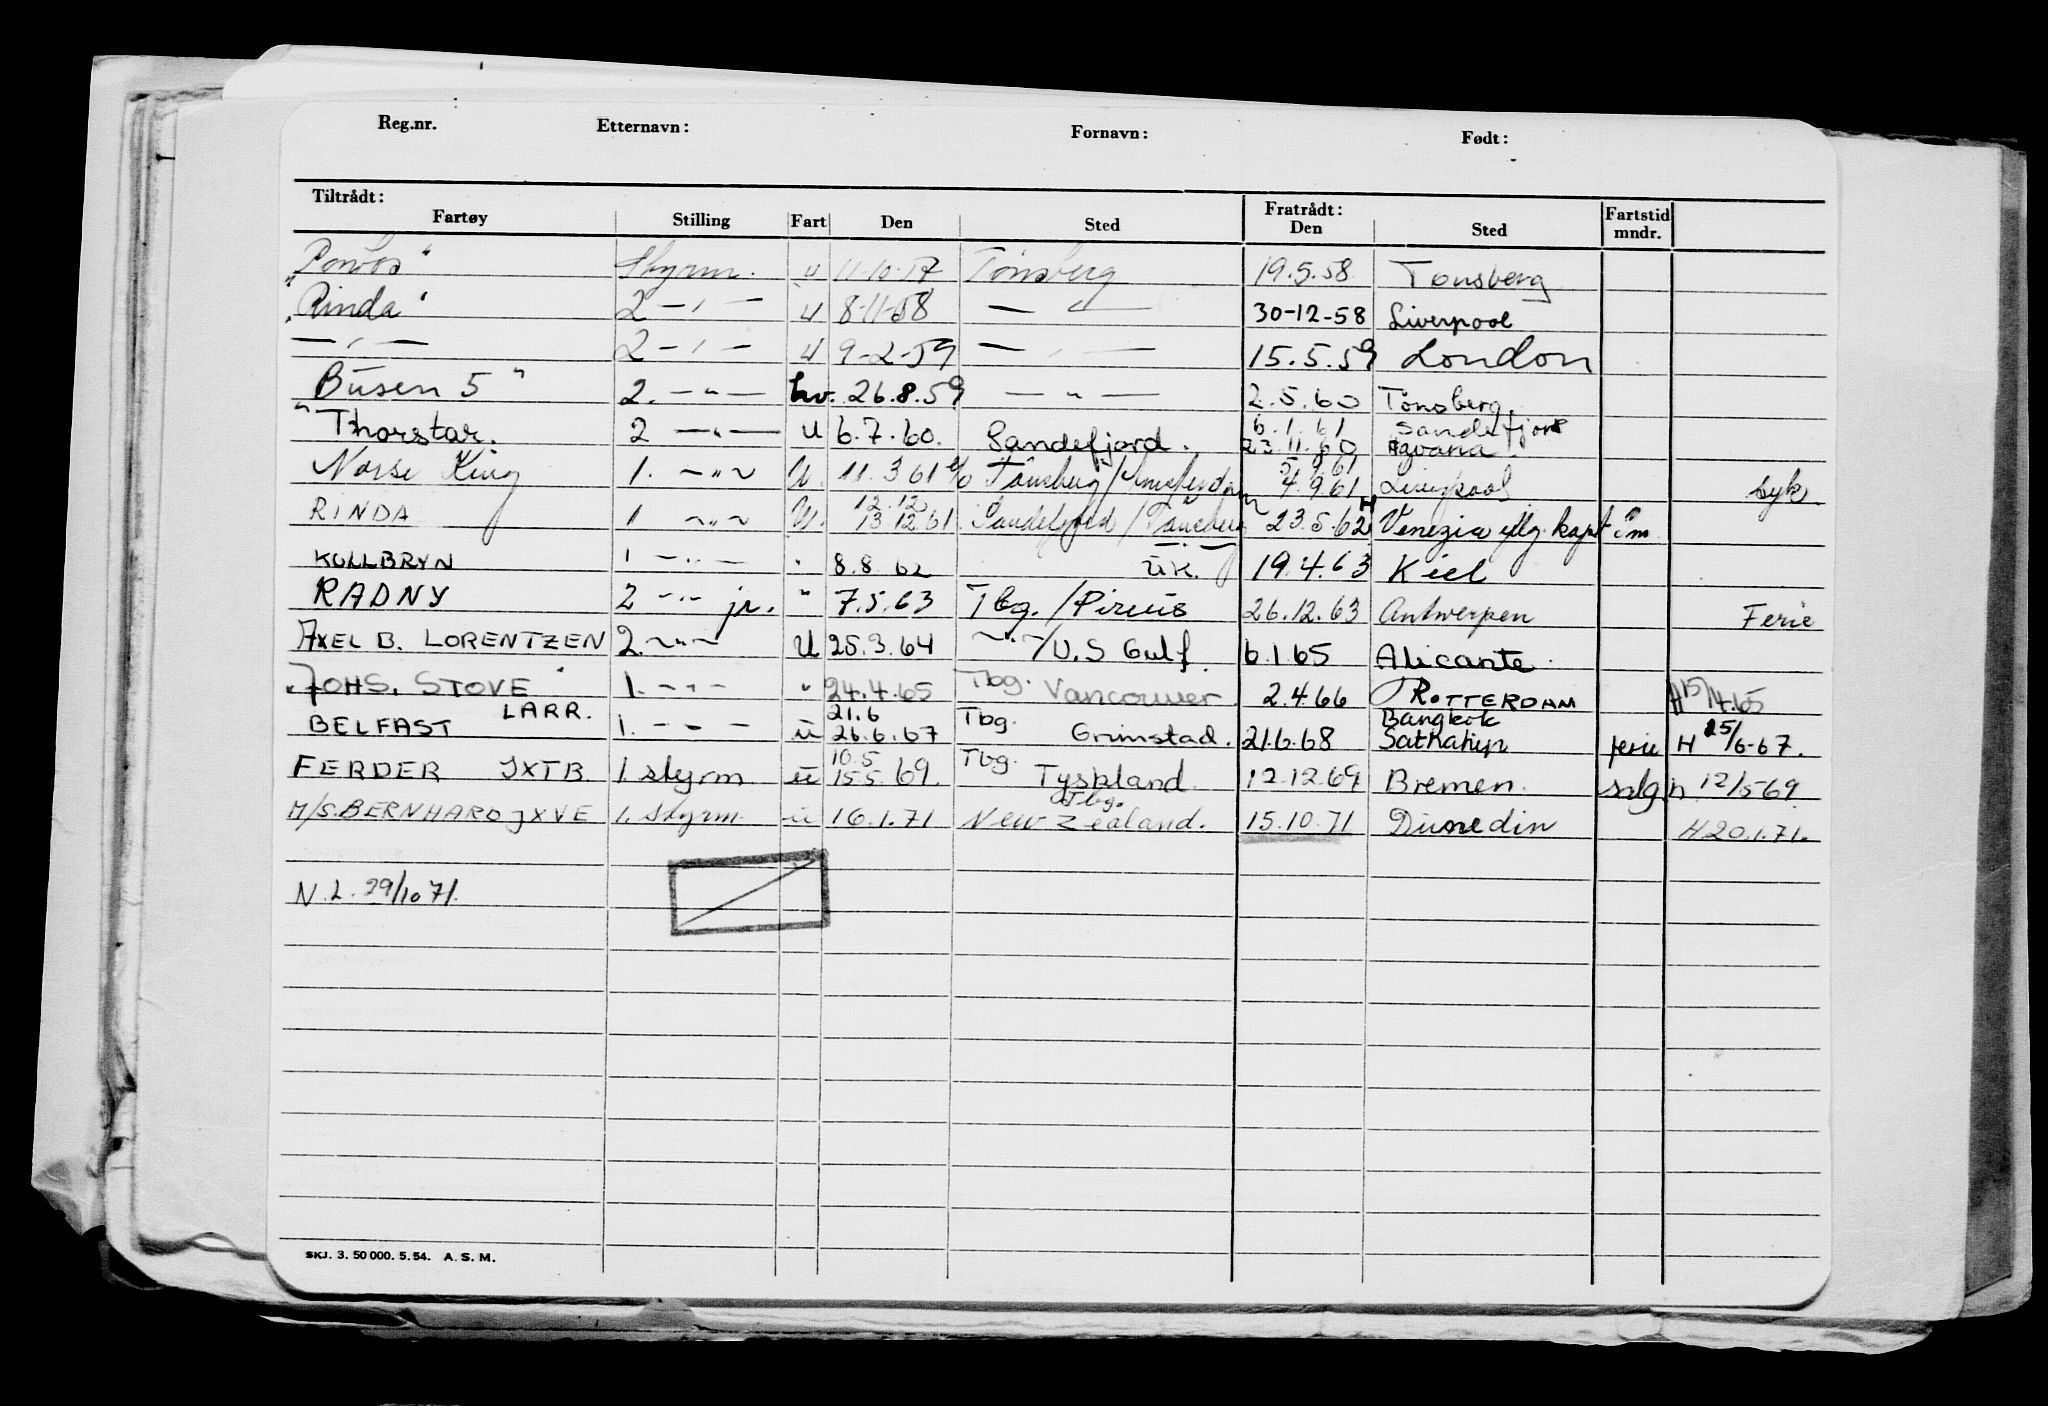 Reg.nr. Etternavn: Fornavn: Født:
Tiltrådt: Fratrådt:
Fartøy Stilling Fart Den Sted Den Sted Fartstid mndr.
Styrm. u 11-10-57 Tønsberg 19.5.58 Tønsberg
"Rinda" 2 — " — u 8-11-58 — " — 30-12-58 Liverpool
— " — 2 — " — u 9-2-59 — " — 15.5.59 London
Busen 5" 2. — " — hv. 26.8.59 — " — 2.5.60 Tønsberg
6.1.61 Sandefjord
"Thorstar. 2 — " — u 6.7.60. Sandefjord. 23.11.60 Havana
5.9.61
Norse King 1. — " — u. 11.3 61 Tønsberg/Amsterdam 4.9.61 Liverpool syk
12.12
RINDA 1 — " — u. 13.12.61 Sandefjord/Tønsberg 23.5.62 Venezia
KOLLBRYN 1 — " — " 8.8.62 U.K. 19.4.63 Kiel
RADNY 2 — " — jr. " 7.5.63 Tbg./Pireus 26.12.63 Antwerpen Ferie
AXEL B. LORENTZEN 2. — " — U 25.3.64 — " — /U.S Gulf. 6.1.65 Alicante
"JOHS. STOVE" 1. — " — " 24.4.65 Tbg. Vancouver. 2.4.66 ROTTERDAM H 15/4.65
LARR. 21.6 Tbg. Bangkok
BELFAST 1. — " — u 26.6.67 Grimstad. 21.6.68 ferie H 25/6-67.
10.5 Tbg.
FERDER JXTB 1 styrm u 15.5.69. Tyskland 12.12.69 Bremen. salg h 12/5 69.
Tbg.
M/S. BERNHARD JXVE 1. styrm u 16.1.71 New Zealand. 15.10.71 Dunedin H 20.1.71.
N.L. 29/10 71.
SKJ. 3. 50 000. 5. 54. A. S. M.